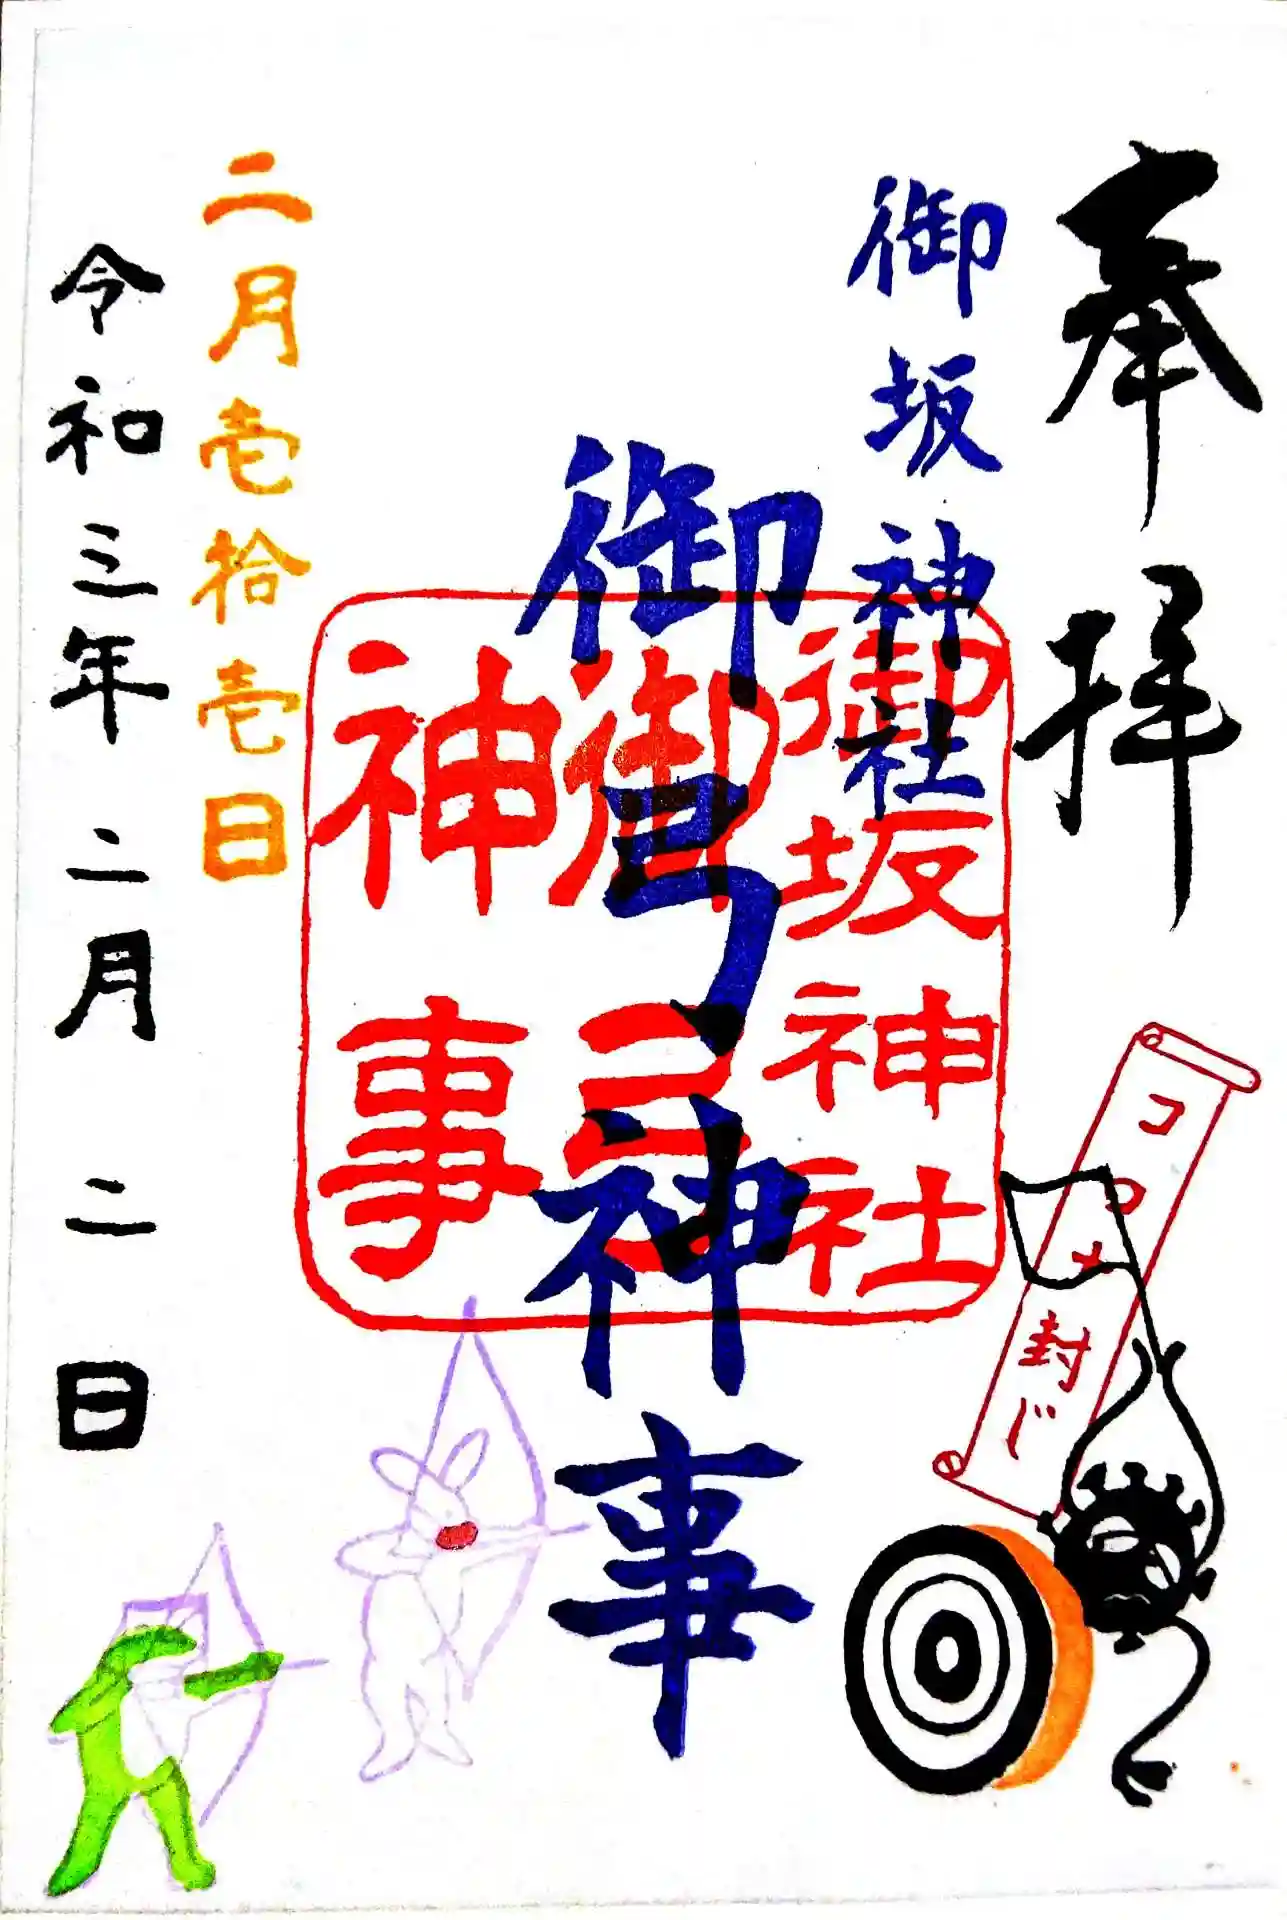 奉拝
コロナ封じ
御坂神社
御坂神社
御弓
神事
御弓神事
二月壱拾壱日
令和三年二月二日